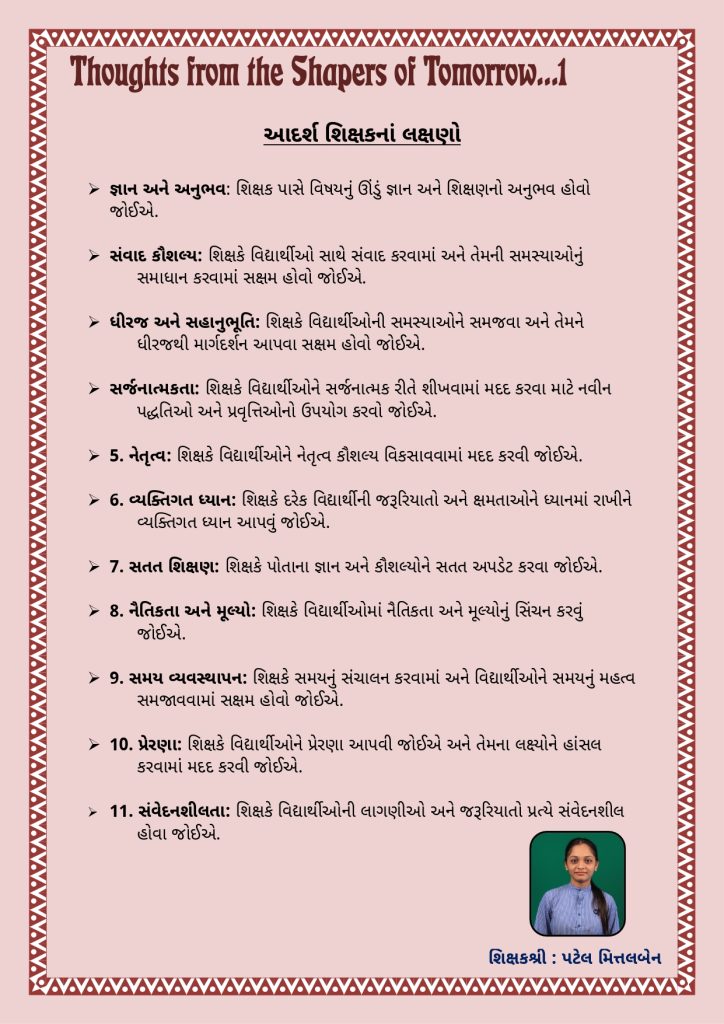 Thoughts from the Shapers of Tomorrow...1
આદર્શ શિક્ષકનાં લક્ષણો
➢ જ્ઞાન અને અનુભવ: શિક્ષક પાસે વિષયનું ઊંડું જ્ઞાન અને શિક્ષણનો અનુભવ હોવો
જોઈએ.
➢ સંવાદ કૌશલ્ય: શિક્ષકે વિદ્યાર્થીઓ સાથે સંવાદ કરવામાં અને તેમની સમસ્યાઓનું
સમાધાન કરવામાં સક્ષમ હોવો જોઈએ.
➢ ધીરજ અને સહાનુભૂતિ: શિક્ષકે વિદ્યાર્થીઓની સમસ્યાઓને સમજવા અને તેમને
ધીરજથી માર્ગદર્શન આપવા સક્ષમ હોવો જોઈએ.
➢ સર્જનાત્મકતા: શિક્ષકે વિદ્યાર્થીઓને સર્જનાત્મક રીતે શીખવામાં મદદ કરવા માટે નવીન
પદ્ધતિઓ અને પ્રવૃત્તિઓનો ઉપયોગ કરવો જોઈએ.
➢ 5. નેતૃત્વ: શિક્ષકે વિદ્યાર્થીઓને નેતૃત્વ કૌશલ્ય વિકસાવવામાં મદદ કરવી જોઈએ.
➢ 6. વ્યક્તિગત ધ્યાન: શિક્ષકે દરેક વિદ્યાર્થીની જરૂરિયાતો અને ક્ષમતાઓને ધ્યાનમાં રાખીને
વ્યક્તિગત ધ્યાન આપવું જોઈએ.
➢ 7. સતત શિક્ષણ: શિક્ષકે પોતાના જ્ઞાન અને કૌશલ્યોને સતત અપડેટ કરવા જોઈએ.
➢ 8. નૈતિકતા અને મૂલ્યો: શિક્ષકે વિદ્યાર્થીઓમાં નૈતિકતા અને મૂલ્યોનું સિંચન કરવું
જોઈએ.
➢ 9. સમય વ્યવસ્થાપન: શિક્ષકે સમયનું સંચાલન કરવામાં અને વિદ્યાર્થીઓને સમયનું મહત્વ
સમજાવવામાં સક્ષમ હોવો જોઈએ.
➢ 10. પ્રેરણા: શિક્ષકે વિદ્યાર્થીઓને પ્રેરણા આપવી જોઈએ અને તેમના લક્ષ્યોને હાંસલ
કરવામાં મદદ કરવી જોઈએ.
➢ 11. સંવેદનશીલતા: શિક્ષકે વિદ્યાર્થીઓની લાગણીઓ અને જરૂરિયાતો પ્રત્યે સંવેદનશીલ
હોવા જોઈએ.
શિક્ષકશ્રી : પટેલ મિત્તલબેન